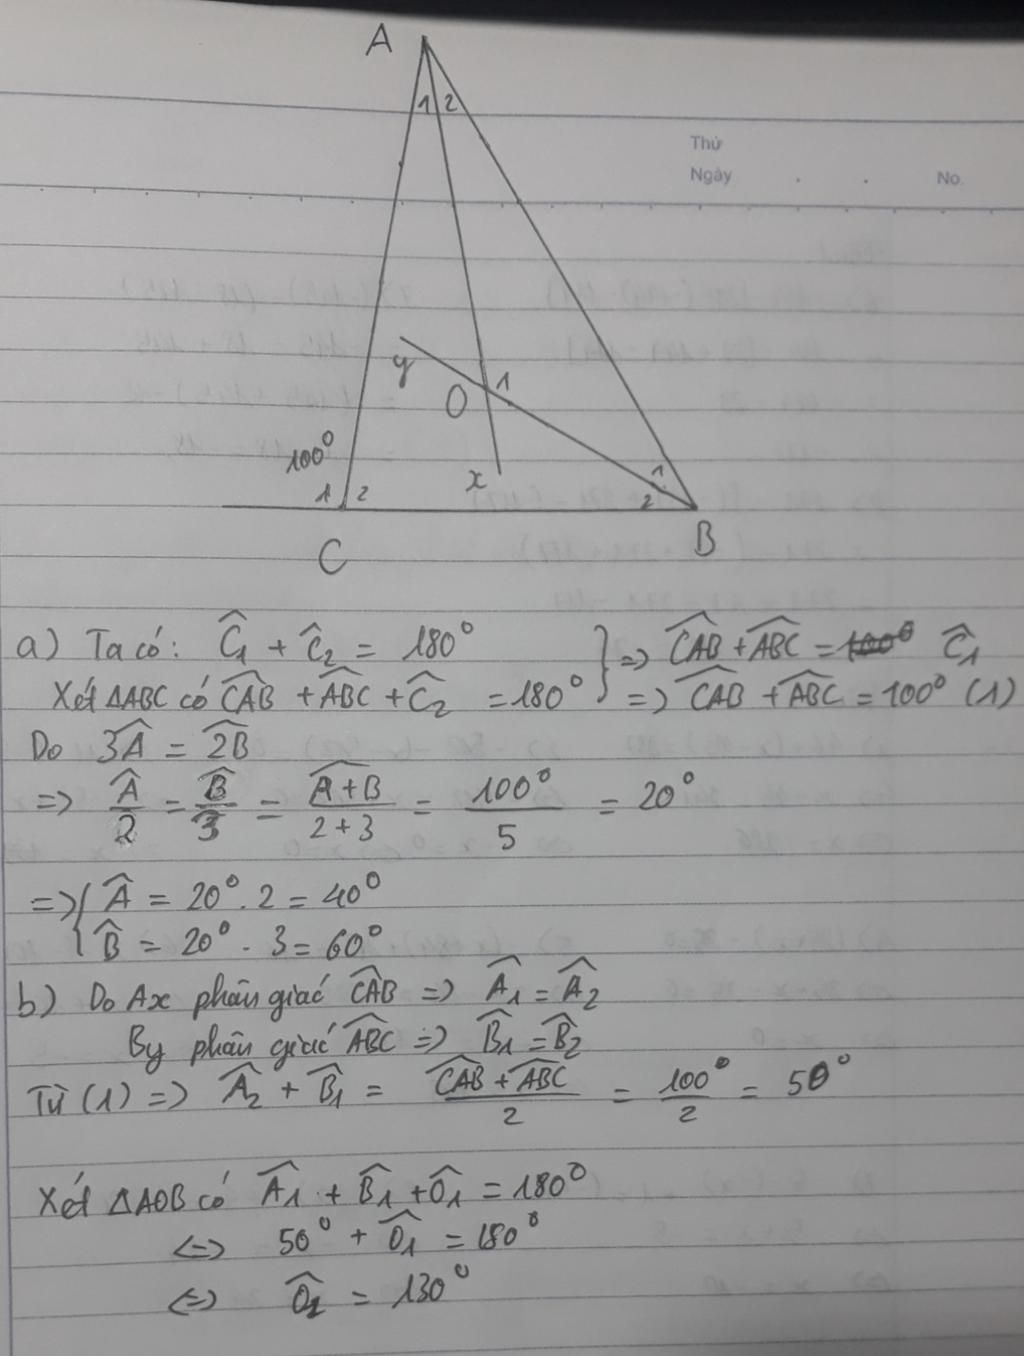 A
1 2
Thứ
Ngày . . No.
y
O 1
100°
x
1
1 2
2
C
B
a) Ta có: Ĉ₁ + Ĉ₂ = 180° } => \widehat{CAB} + \widehat{ABC} = Ĉ₁
Xét ΔABC có \widehat{CAB} + \widehat{ABC} + Ĉ₂ = 180° => \widehat{CAB} + \widehat{ABC} = 100° (1)
Do \widehat{3A} = \widehat{2B}
=> Â/2 = B̂/3 = \widehat{A+B}/(2+3) = 100°/5 = 20°
=> { Â = 20° . 2 = 40°
B̂ = 20° . 3 = 60°
b) Do Ax phân giác \widehat{CAB} => Â₁ = Â₂
By phân giác \widehat{ABC} => B̂₁ = B̂₂
Từ (1) => Â₂ + B̂₁ = (\widehat{CAB} + \widehat{ABC})/2 = 100°/2 = 50°
Xét ΔAOB có Â₁ + B̂₁ + Ô₁ = 180°
<=> 50° + Ô₁ = 180°
<=> Ô₁ = 130°